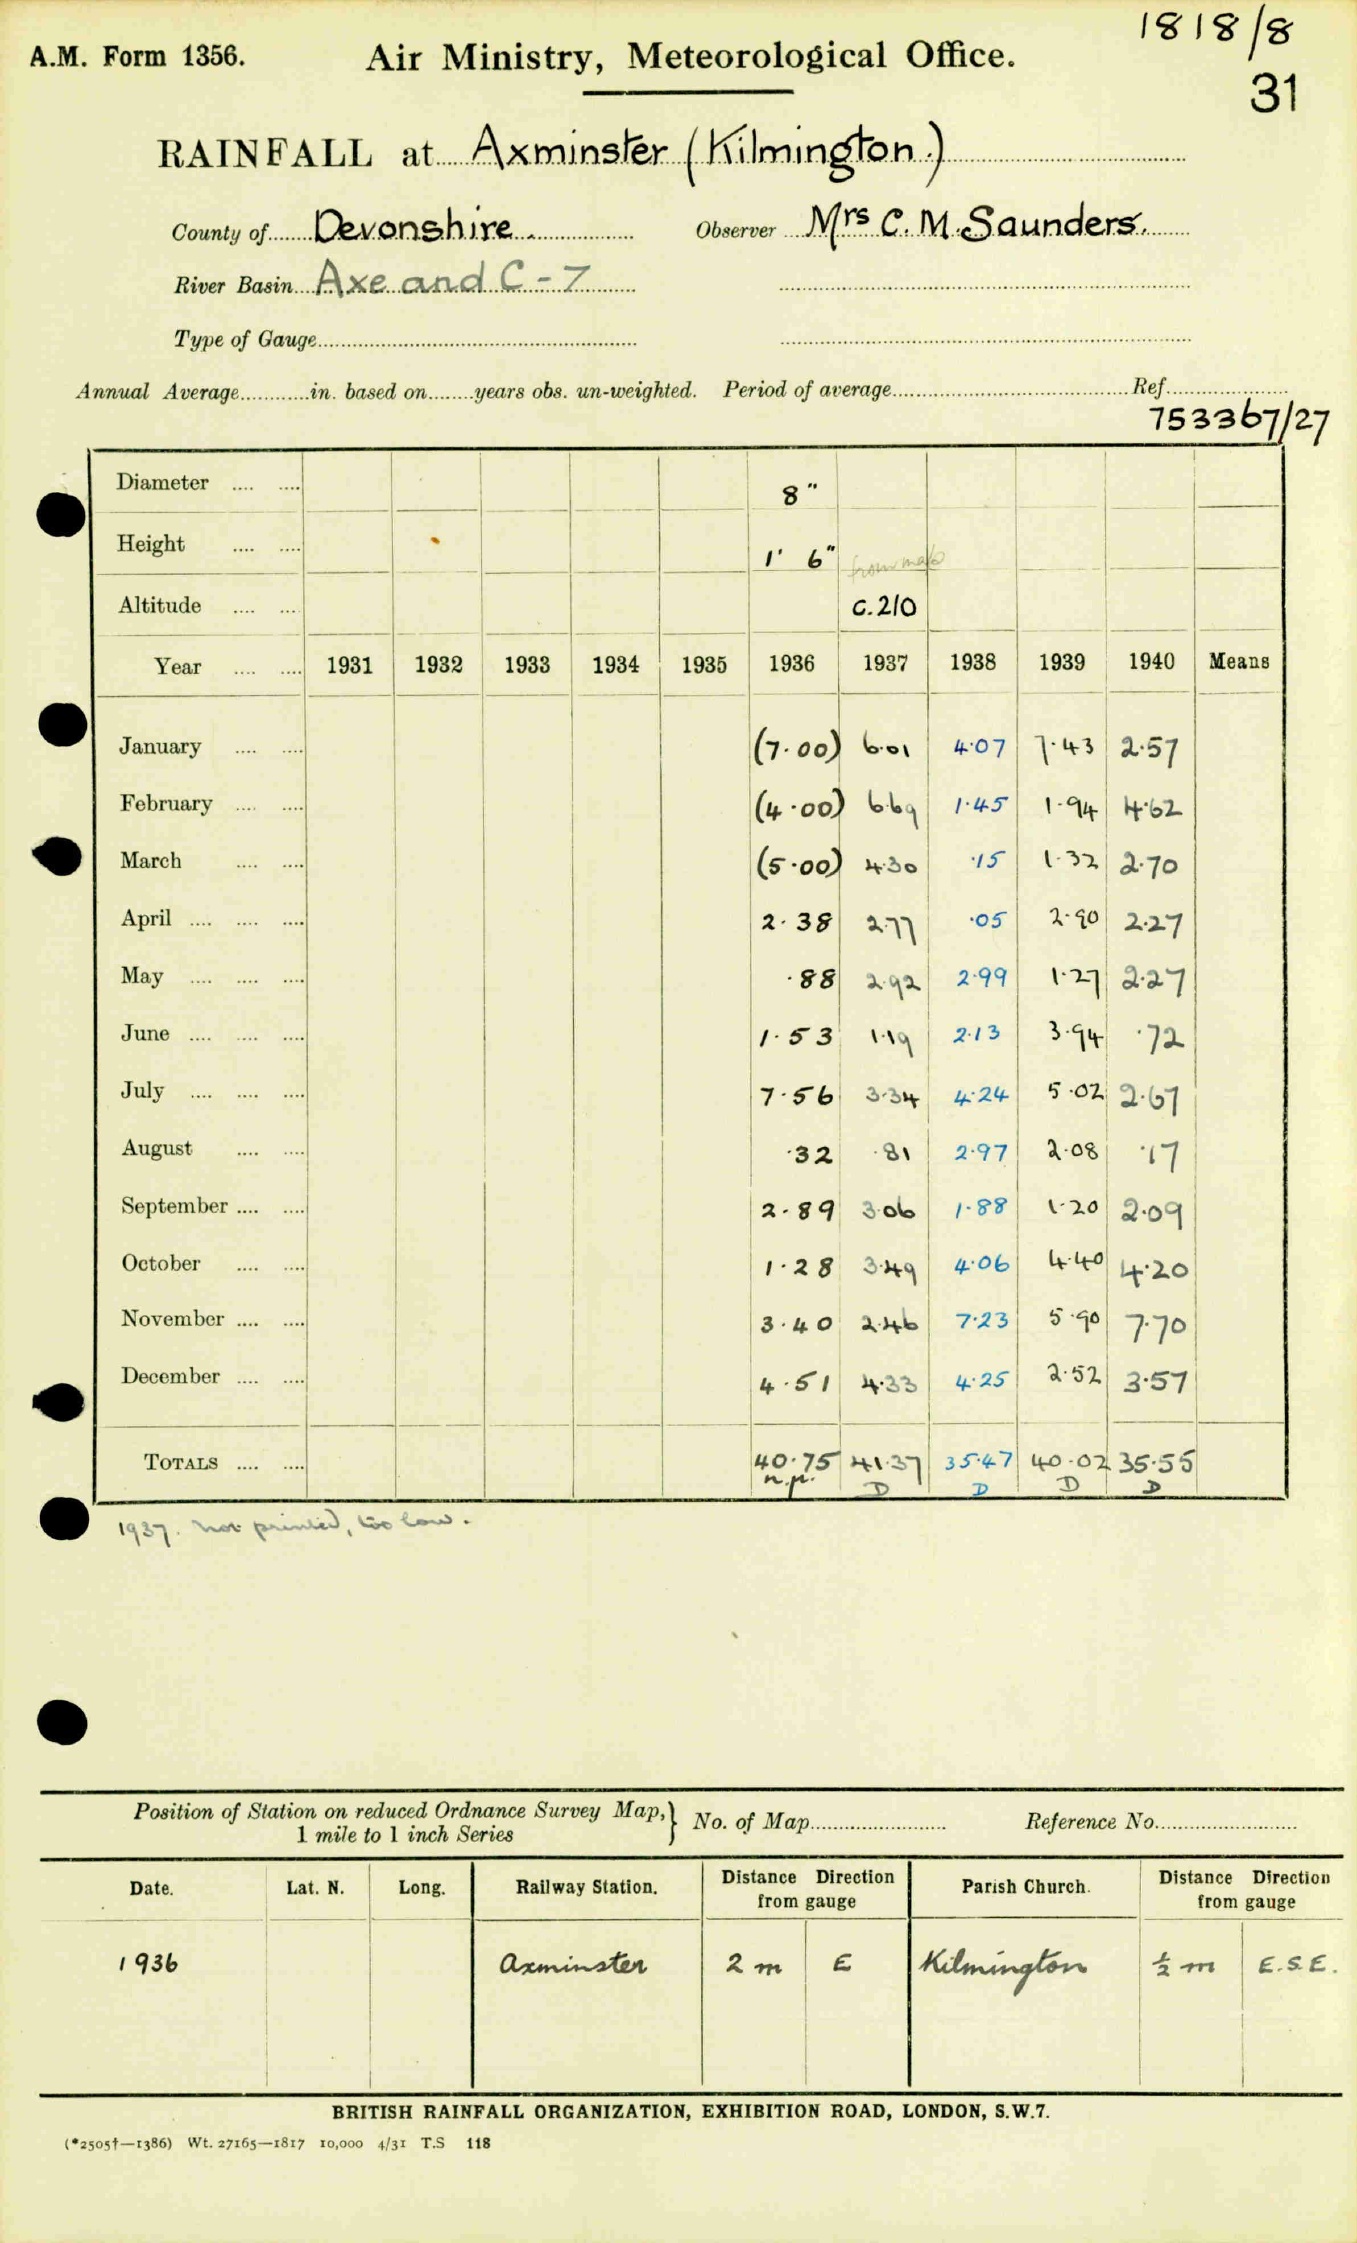 1818/8
A.M. Form 1356. Air Ministry, Meteorological Office.
31
RAINFALL at Axminster (Kilmington.)
County of Devonshire. Observer Mrs C. M. Saunders.
River Basin Axe and C - 7
Type of Gauge
Annual Average in. based on years obs. un-weighted. Period of average Ref.
753367/27
Diameter 8"
Height 1' 6" from map
Altitude c.210
Year 1931 1932 1933 1934 1935 1936 1937 1938 1939 1940 Means
January (7.00) 6.01 4.07 7.43 2.57
February (4.00) 6.69 1.45 1.94 4.62
March (5.00) 4.30 .15 1.32 2.70
April 2.38 2.77 .05 2.90 2.27
May .88 2.92 2.99 1.27 2.27
June 1.53 1.19 2.13 3.94 .72
July 7.56 3.34 4.24 5.02 2.67
August .32 .81 2.97 2.08 .17
September 2.89 3.06 1.88 1.20 2.09
October 1.28 3.49 4.06 4.40 4.20
November 3.40 2.46 7.23 5.90 7.70
December 4.51 4.33 4.25 2.52 3.57
TOTALS 40.75 41.37 35.47 40.02 35.55
n.p. D D D D
1937. not printed, too low.
Position of Station on reduced Ordnance Survey Map, } No. of Map Reference No.
1 mile to 1 inch Series
Date. Lat. N. Long. Railway Station. Distance Direction from gauge Parish Church. Distance Direction from gauge
1936 Axminster 2 m E Kilmington ½ m E.S.E.
BRITISH RAINFALL ORGANIZATION, EXHIBITION ROAD, LONDON, S.W.7.
(*2505†—1386) Wt. 27165—1817 10,000 4/31 T.S 118